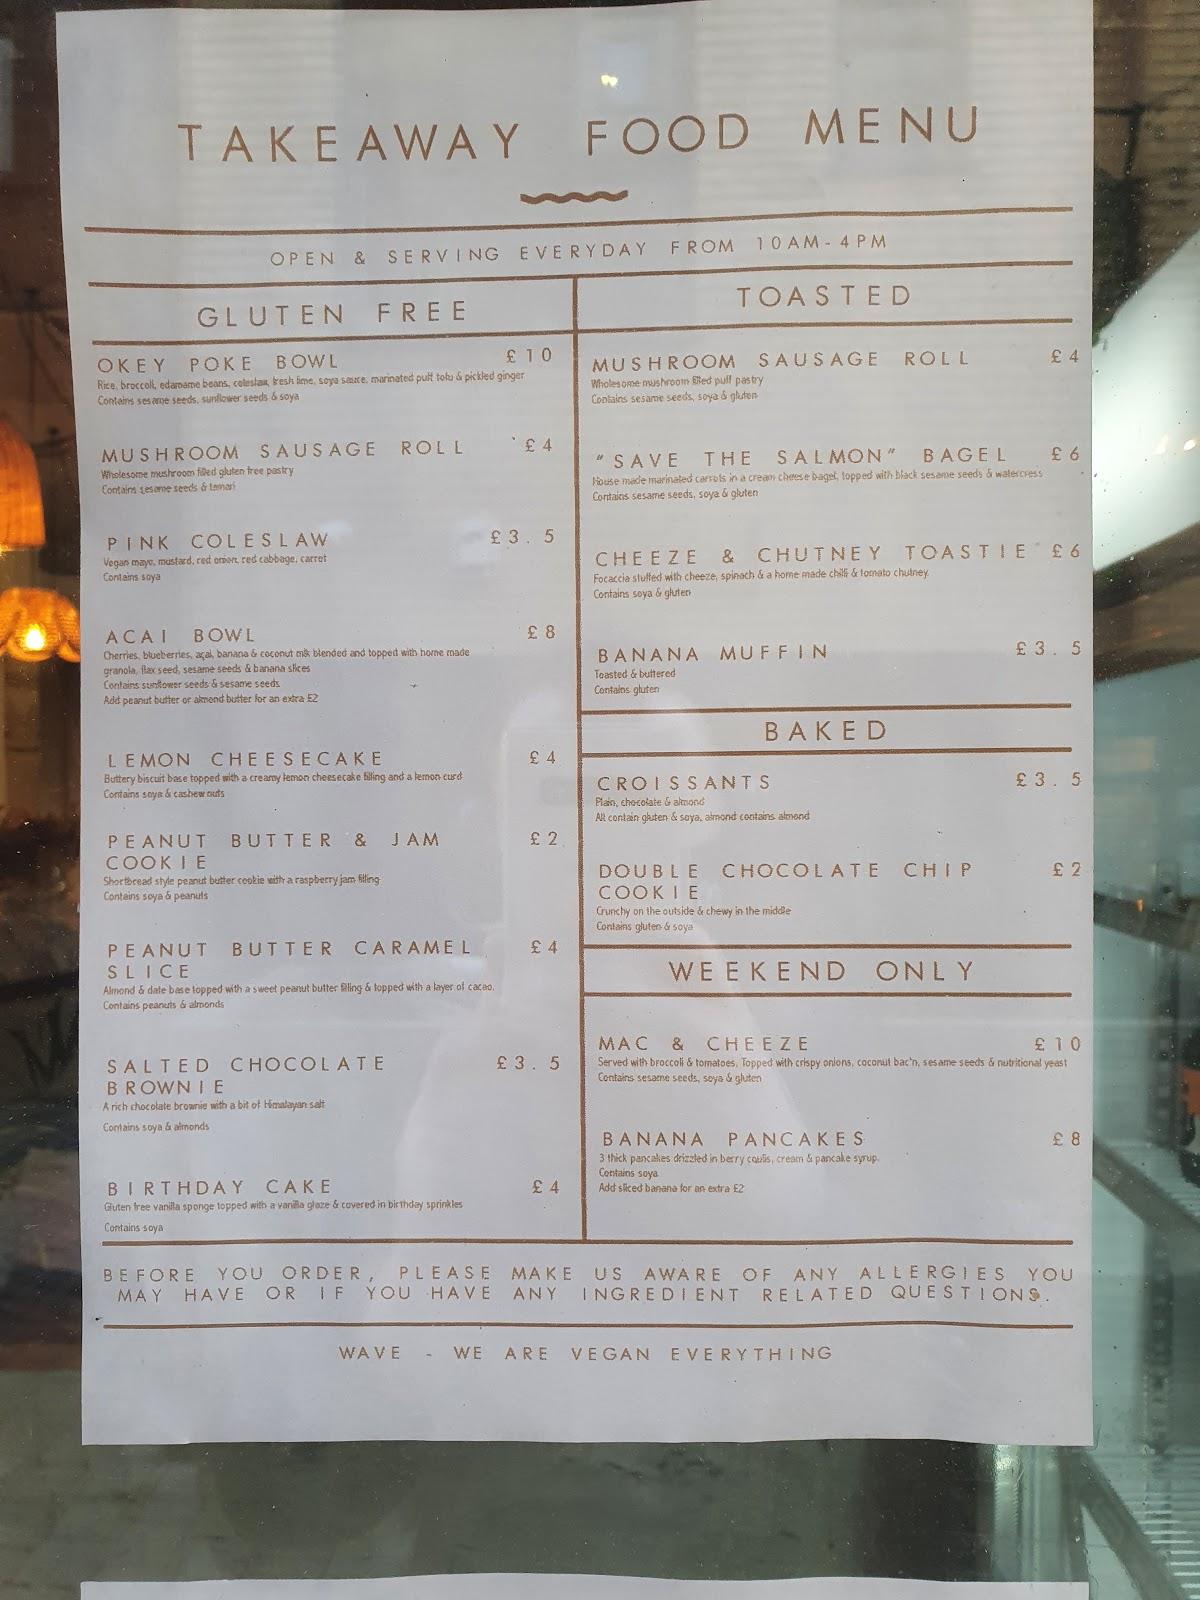 TAKEAWAY FOOD MENU
OPEN & SERVING EVERYDAY FROM 10AM-4PM
GLUTEN FREE
OKEY POKE BOWL £10
Rice, broccoli, edamame beans, coleslaw, fresh lime, soya sauce, marinated puff tofu & pickled ginger
Contains sesame seeds, sunflower seeds & soya
MUSHROOM SAUSAGE ROLL £4
Wholesome mushroom filled gluten free pastry
Contains sesame seeds & tamari
PINK COLESLAW £3.5
Vegan mayo, mustard, red onion, red cabbage, carrot
Contains soya
ACAI BOWL £8
Cherries, blueberries, açai, banana & coconut milk blended and topped with home made
granola, flax seed, sesame seeds & banana slices
Contains sunflower seeds & sesame seeds
Add peanut butter or almond butter for an extra £2
LEMON CHEESECAKE £4
Buttery biscuit base topped with a creamy lemon cheesecake filling and a lemon curd
Contains soya & cashew nuts
PEANUT BUTTER & JAM £2
COOKIE
Shortbread style peanut butter cookie with a raspberry jam filling
Contains soya & peanuts
PEANUT BUTTER CARAMEL £4
SLICE
Almond & date base topped with a sweet peanut butter filling & topped with a layer of cacao.
Contains peanuts & almonds
SALTED CHOCOLATE £3.5
BROWNIE
A rich chocolate brownie with a bit of Himalayan salt
Contains soya & almonds
BIRTHDAY CAKE £4
Gluten free vanilla sponge topped with a vanilla glaze & covered in birthday sprinkles
Contains soya
TOASTED
MUSHROOM SAUSAGE ROLL £4
Wholesome mushroom filled puff pastry
Contains sesame seeds, soya & gluten
"SAVE THE SALMON" BAGEL £6
House made marinated carrots in a cream cheese bagel, topped with black sesame seeds & watercress
Contains sesame seeds, soya & gluten
CHEEZE & CHUTNEY TOASTIE £6
Focaccia stuffed with cheeze, spinach & a home made chilli & tomato chutney.
Contains soya & gluten
BANANA MUFFIN £3.5
Toasted & buttered
Contains gluten
BAKED
CROISSANTS £3.5
Plain, chocolate & almond
All contain gluten & soya, almond contains almond
DOUBLE CHOCOLATE CHIP £2
COOKIE
Crunchy on the outside & chewy in the middle
Contains gluten & soya
WEEKEND ONLY
MAC & CHEEZE £10
Served with broccoli & tomatoes, Topped with crispy onions, coconut bac'n, sesame seeds & nutritional yeast
Contains sesame seeds, soya & gluten
BANANA PANCAKES £8
3 thick pancakes drizzled in berry coulis, cream & pancake syrup.
Contains soya
Add sliced banana for an extra £2
BEFORE YOU ORDER, PLEASE MAKE US AWARE OF ANY ALLERGIES YOU
MAY HAVE OR IF YOU HAVE ANY INGREDIENT RELATED QUESTIONS.
WAVE - WE ARE VEGAN EVERYTHING